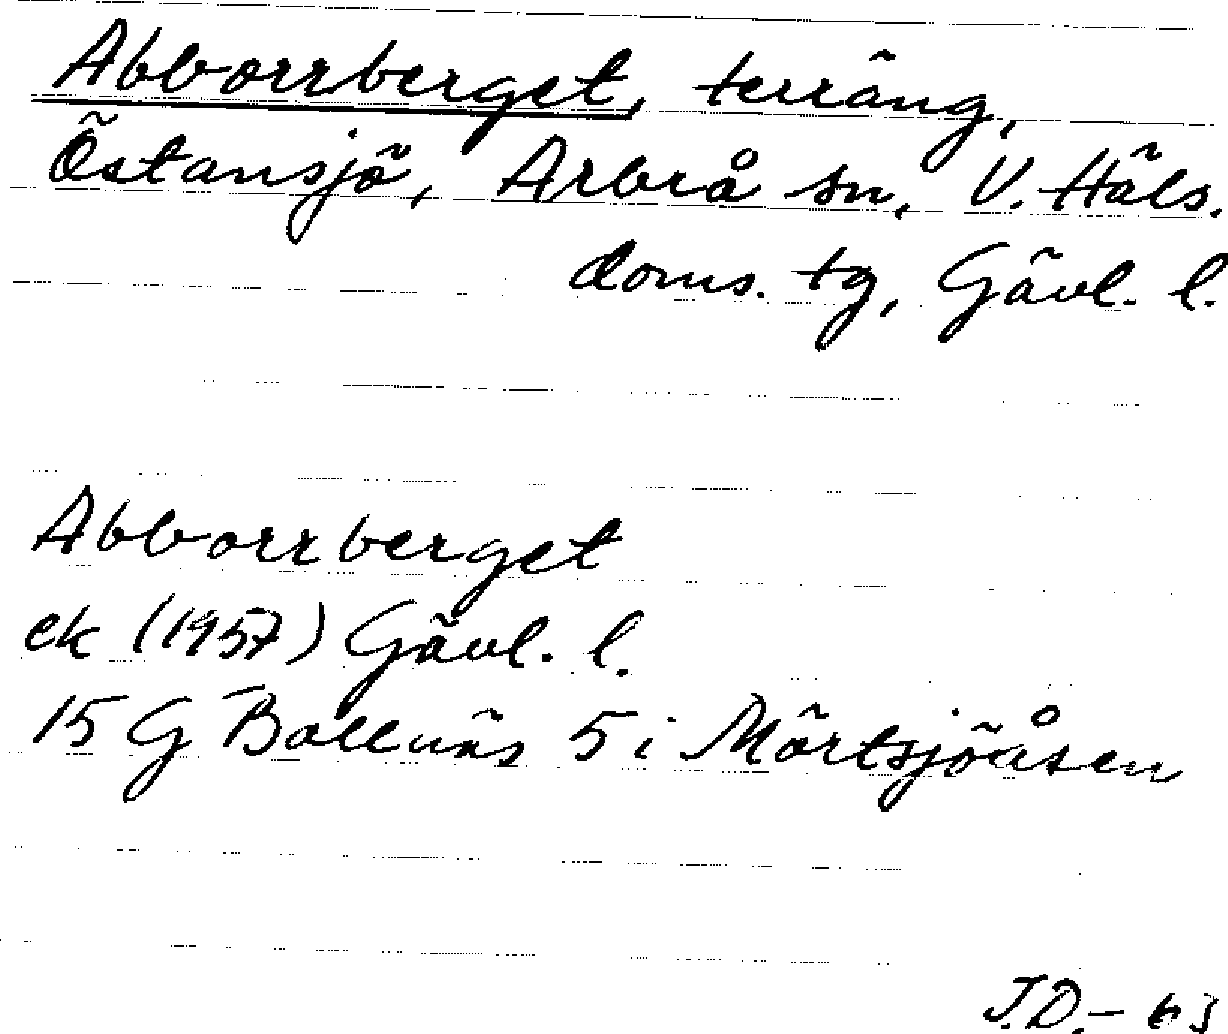 Abborrberget, terräng,
Östansjö, Arbrå sn, V. Häls.
doms. tg, Gävl. l.
Abborrberget
ek (1957) Gävl. l.
15 G Bollnäs 5 i Mörtsjöåsen
J.D. – 63